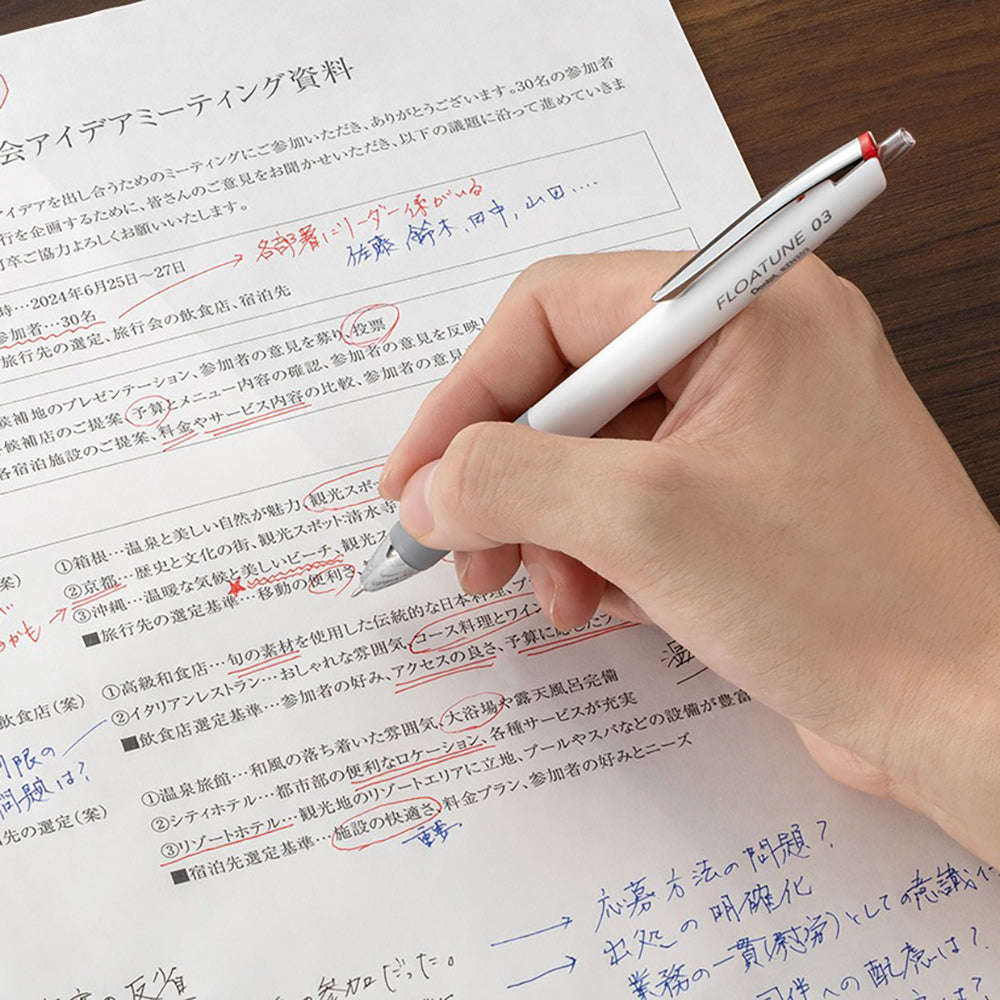 会アイデアミーティング資料
アイデアを出し合うためのミーティングにご参加いただき、ありがとうございます。30名の参加者
行を企画するために、皆さんのご意見をお聞かせいただき、以下の議題に沿って進めていきま
卒ご協力よろしくお願いいたします。
各部署にリーダー係がいる
佐藤 鈴木、田中、山田‥‥
時…2024年6月25日〜27日
参加者…30名
旅行先の選定、旅行会の飲食店、宿泊先
候補地のプレゼンテーション、参加者の意見を募り、投票
候補店のご提案、予算とメニュー内容の確認、参加者の意見を反映し
各宿泊施設のご提案、料金やサービス内容の比較、参加者の意見
案)
①箱根…温泉と美しい自然が魅力、観光スポッ
②京都…歴史と文化の街、観光スポット清水寺
③沖縄…温暖な気候と美しいビーチ、観光ス
■旅行先の選定基準…移動の便利さ
かも
飲食店(案)
①高級和食店…旬の素材を使用した伝統的な日本料理、プ
②イタリアンレストラン…おしゃれな雰囲気、コース料理とワイン
■飲食店選定基準…参加者の好み、アクセスの良さ、予算に応じたプ
温
制限の
問題は?
先の選定(案)
①温泉旅館…和風の落ち着いた雰囲気、大浴場や露天風呂完備
②シティホテル…都市部の便利なロケーション、各種サービスが充実
③リゾートホテル…観光地のリゾートエリアに立地、プールやスパなどの設備が豊富
■宿泊先選定基準…施設の快適さ、料金プラン、参加者の好みとニーズ
重要
応募方法の問題?
出処の明確化
業務の一貫(慰労)としての意識
同伴への配慮は?
の反省
の参加だった。
FLOATUNE 03
Pentel